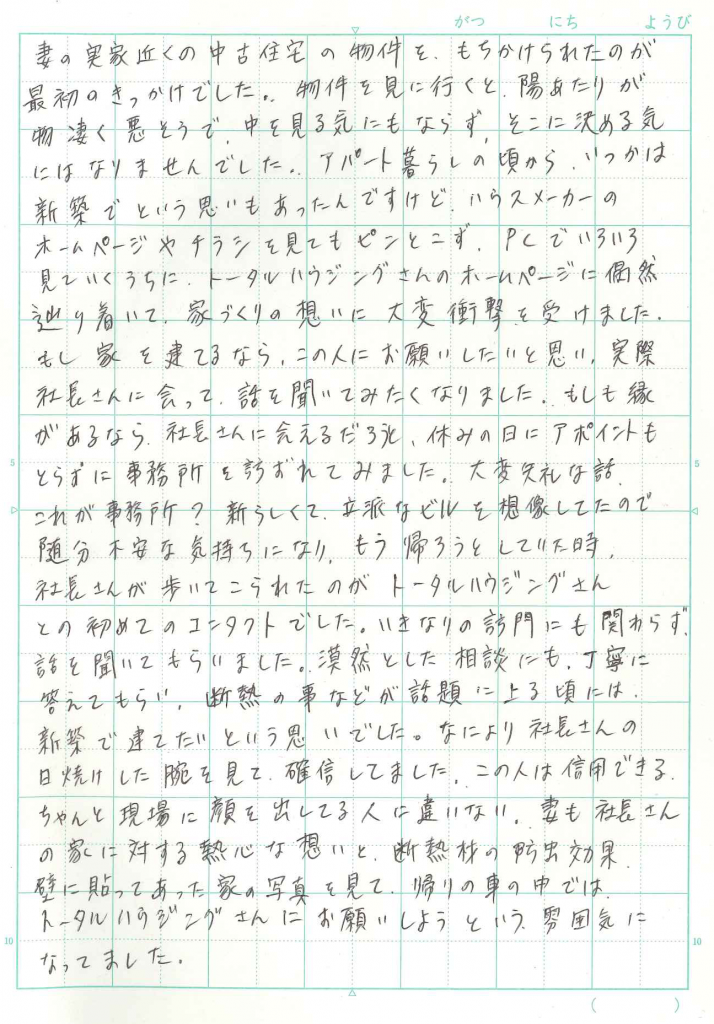 がつ にち ようび
妻の実家近くの中古住宅の物件を、もちかけられたのが
最初のきっかけでした。物件を見に行くと、陽あたりが
物凄く悪そうで、中を見る気にもならず、そこに決める気
にはなりませんでした。アパート暮らしの頃から、いつかは
新築でという思いもあったんですけど、ハウスメーカーの
ホームページやチラシを見てもピンとこず、PCでいろいろ
見ていくうちに、トータルハウジングさんのホームページに偶然
辿り着いて、家づくりの想いに大変衝撃を受けました。
もし家を建てるなら、この人にお願いしたいと思い、実際
社長さんに会って、話を聞いてみたくなりました。もしも縁
があるなら、社長さんに会えるだろうと、休みの日にアポイントも
5 とらずに事務所を訪ずれてみました。大変失礼な話、 5
これが事務所?新らしくて、立派なビルを想像してたので
随分不安な気持ちになり、もう帰ろうとしていた時、
社長さんが歩いてこられたのがトータルハウジングさん
との初めてのコンタクトでした。いきなりの訪門にも関わらず、
話を聞いてもらいました。漠然とした相談にも、丁寧に
答えてもらい、断熱の事などが話題に上る頃には、
新築で建てたいという思いでした。なにより社長さんの
日焼けした腕を見て、確信してました。この人は信用できる、
ちゃんと現場に顔を出してる人に違いない。妻も社長さん
の家に対する熱心な想いと、断熱材の防虫効果、
壁に貼ってあった家の写真を見て、帰りの車の中では、
トータルハウジングさんにお願いしようという、雰囲気に
10 なってました。 10
( )